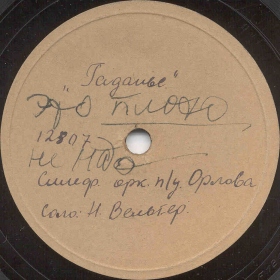 „Гаданье"
Это плохо
12807
не надо
Симф. орк. п/у Орлова
Соло: Н. Вельтер.